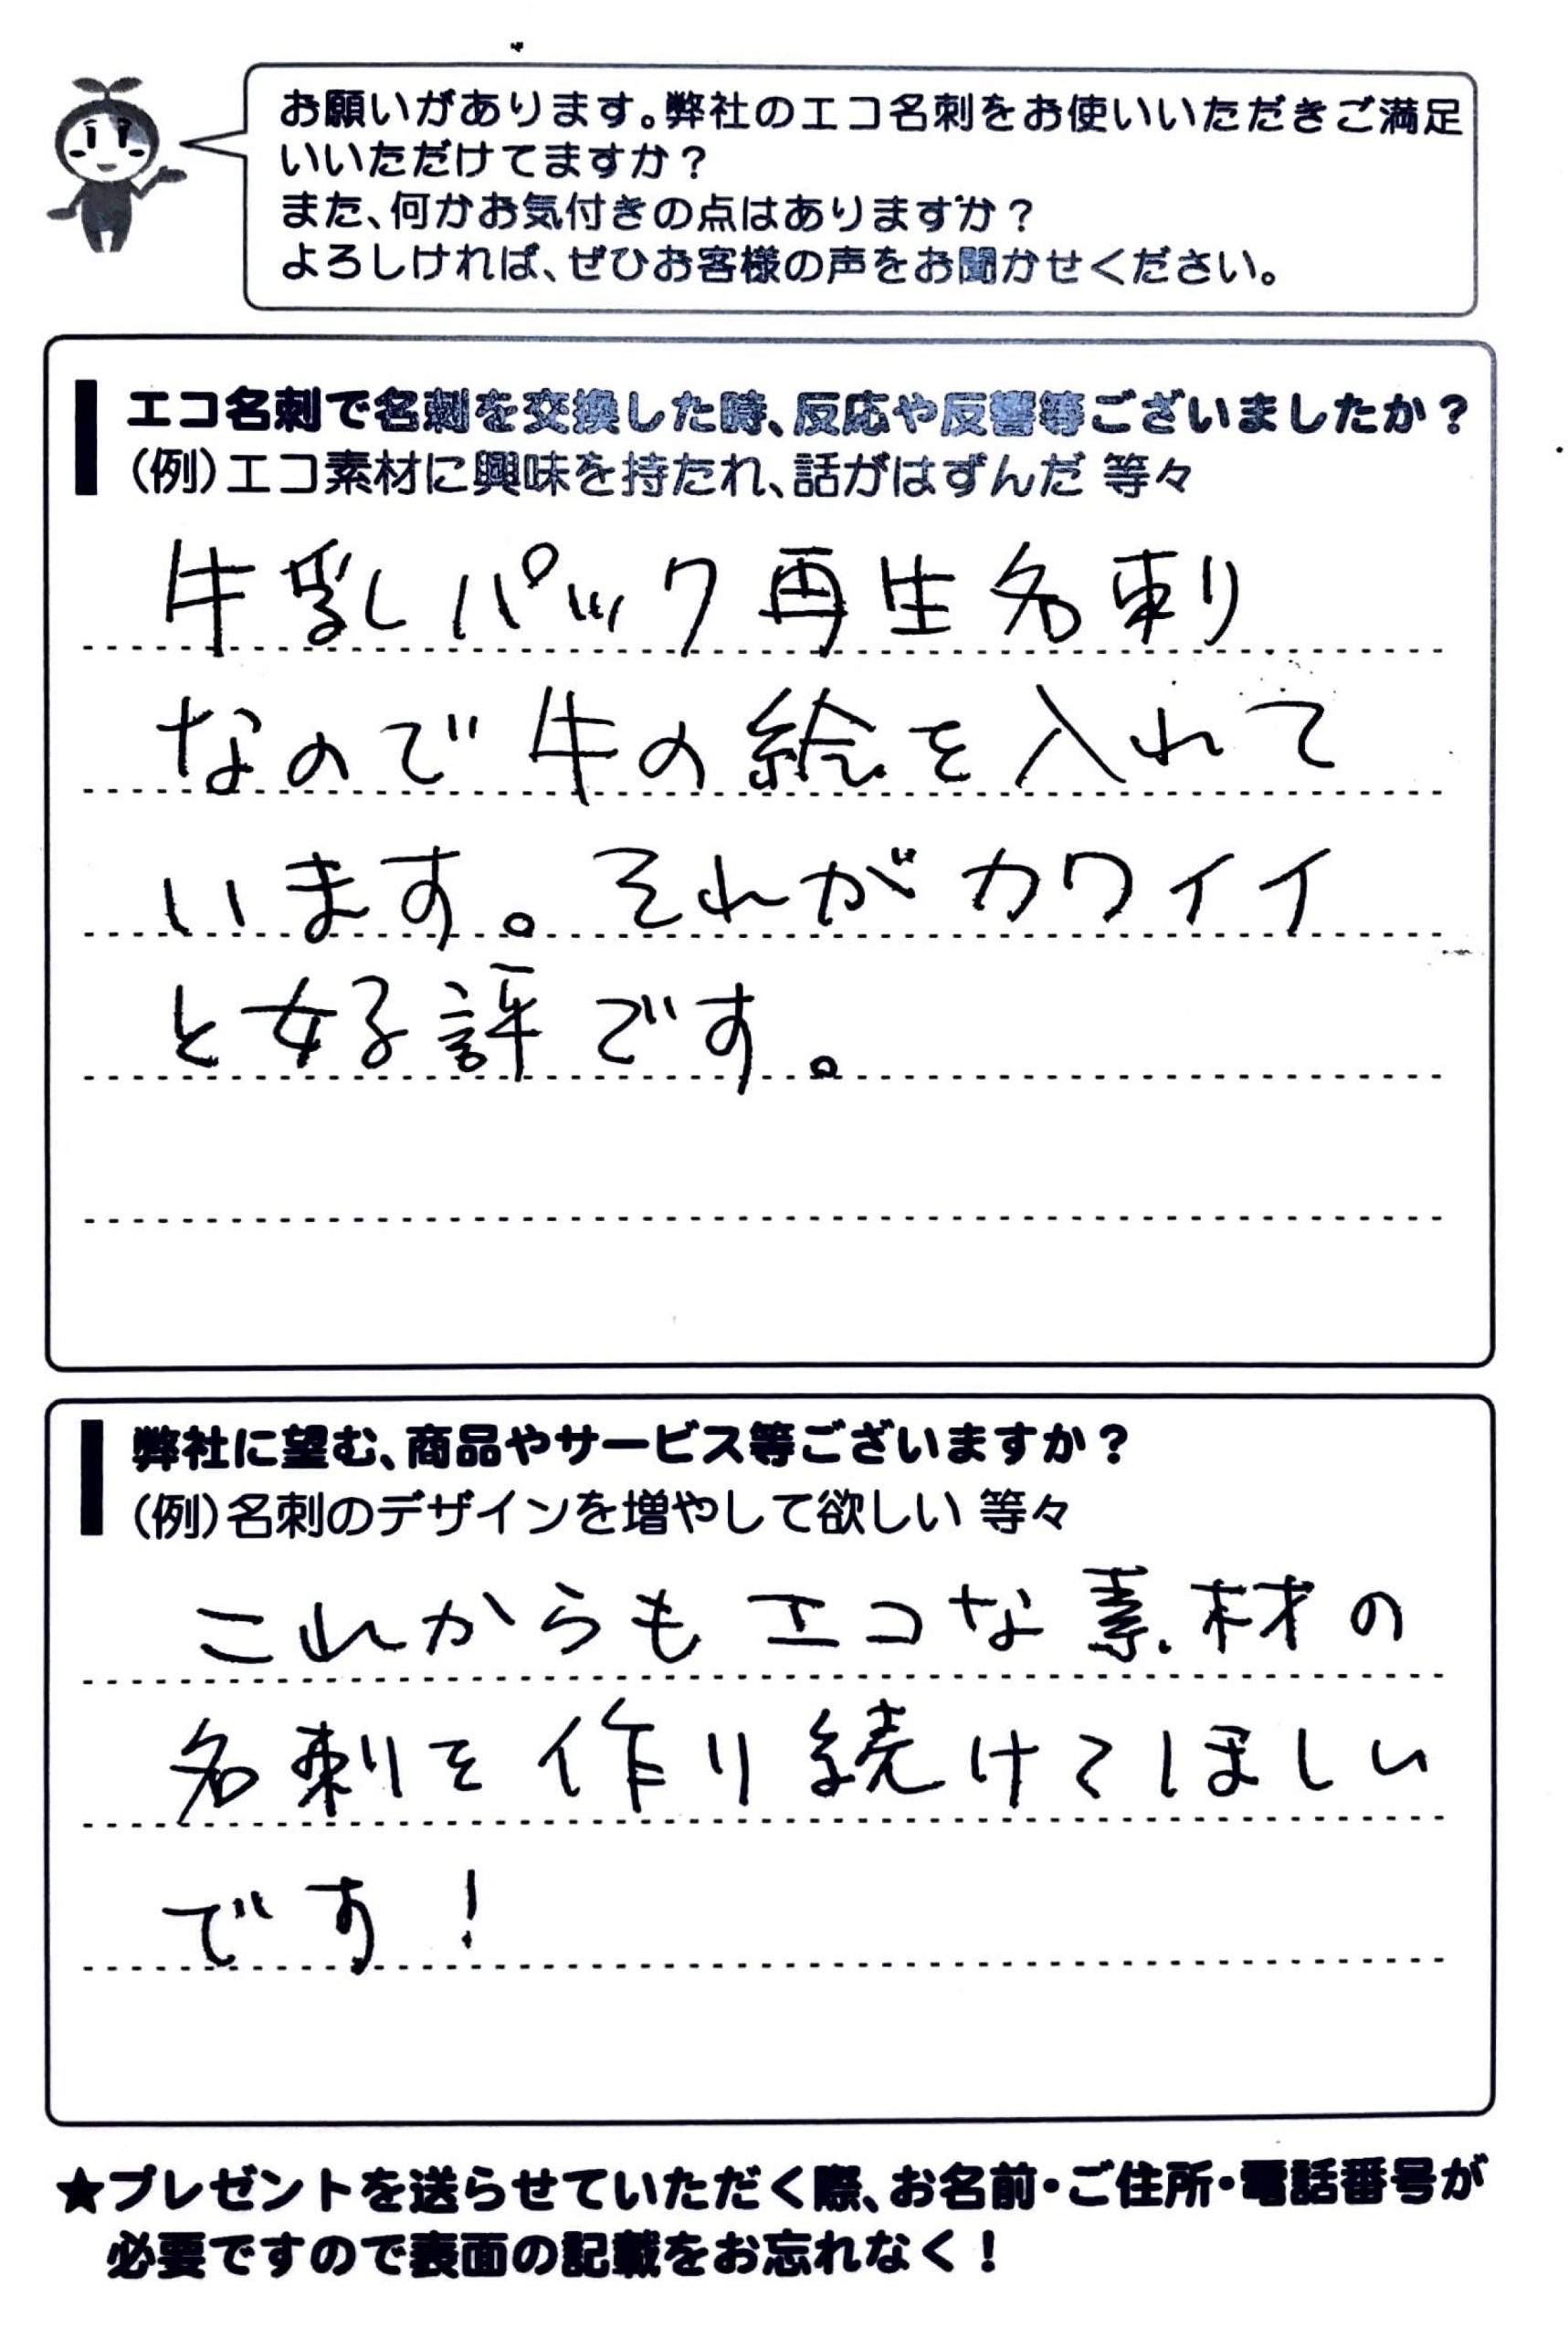 お願いがあります。弊社のエコ名刺をお使いいただきご満足
いいただけてますか？
また、何かお気付きの点はありますか？
よろしければ、ぜひお客様の声をお聞かせください。
エコ名刺で名刺を交換した時、反応や反響等ございましたか？
（例）エコ素材に興味を持たれ、話がはずんだ 等々
牛乳パック再生名刺
なので牛の絵を入れて
います。それがカワイイ
と好評です。
弊社に望む、商品やサービス等ございますか？
（例）名刺のデザインを増やして欲しい 等々
これからもエコな素材の
名刺を作り続けてほしい
です！
★プレゼントを送らせていただく際、お名前・ご住所・電話番号が
必要ですので表面の記載をお忘れなく！